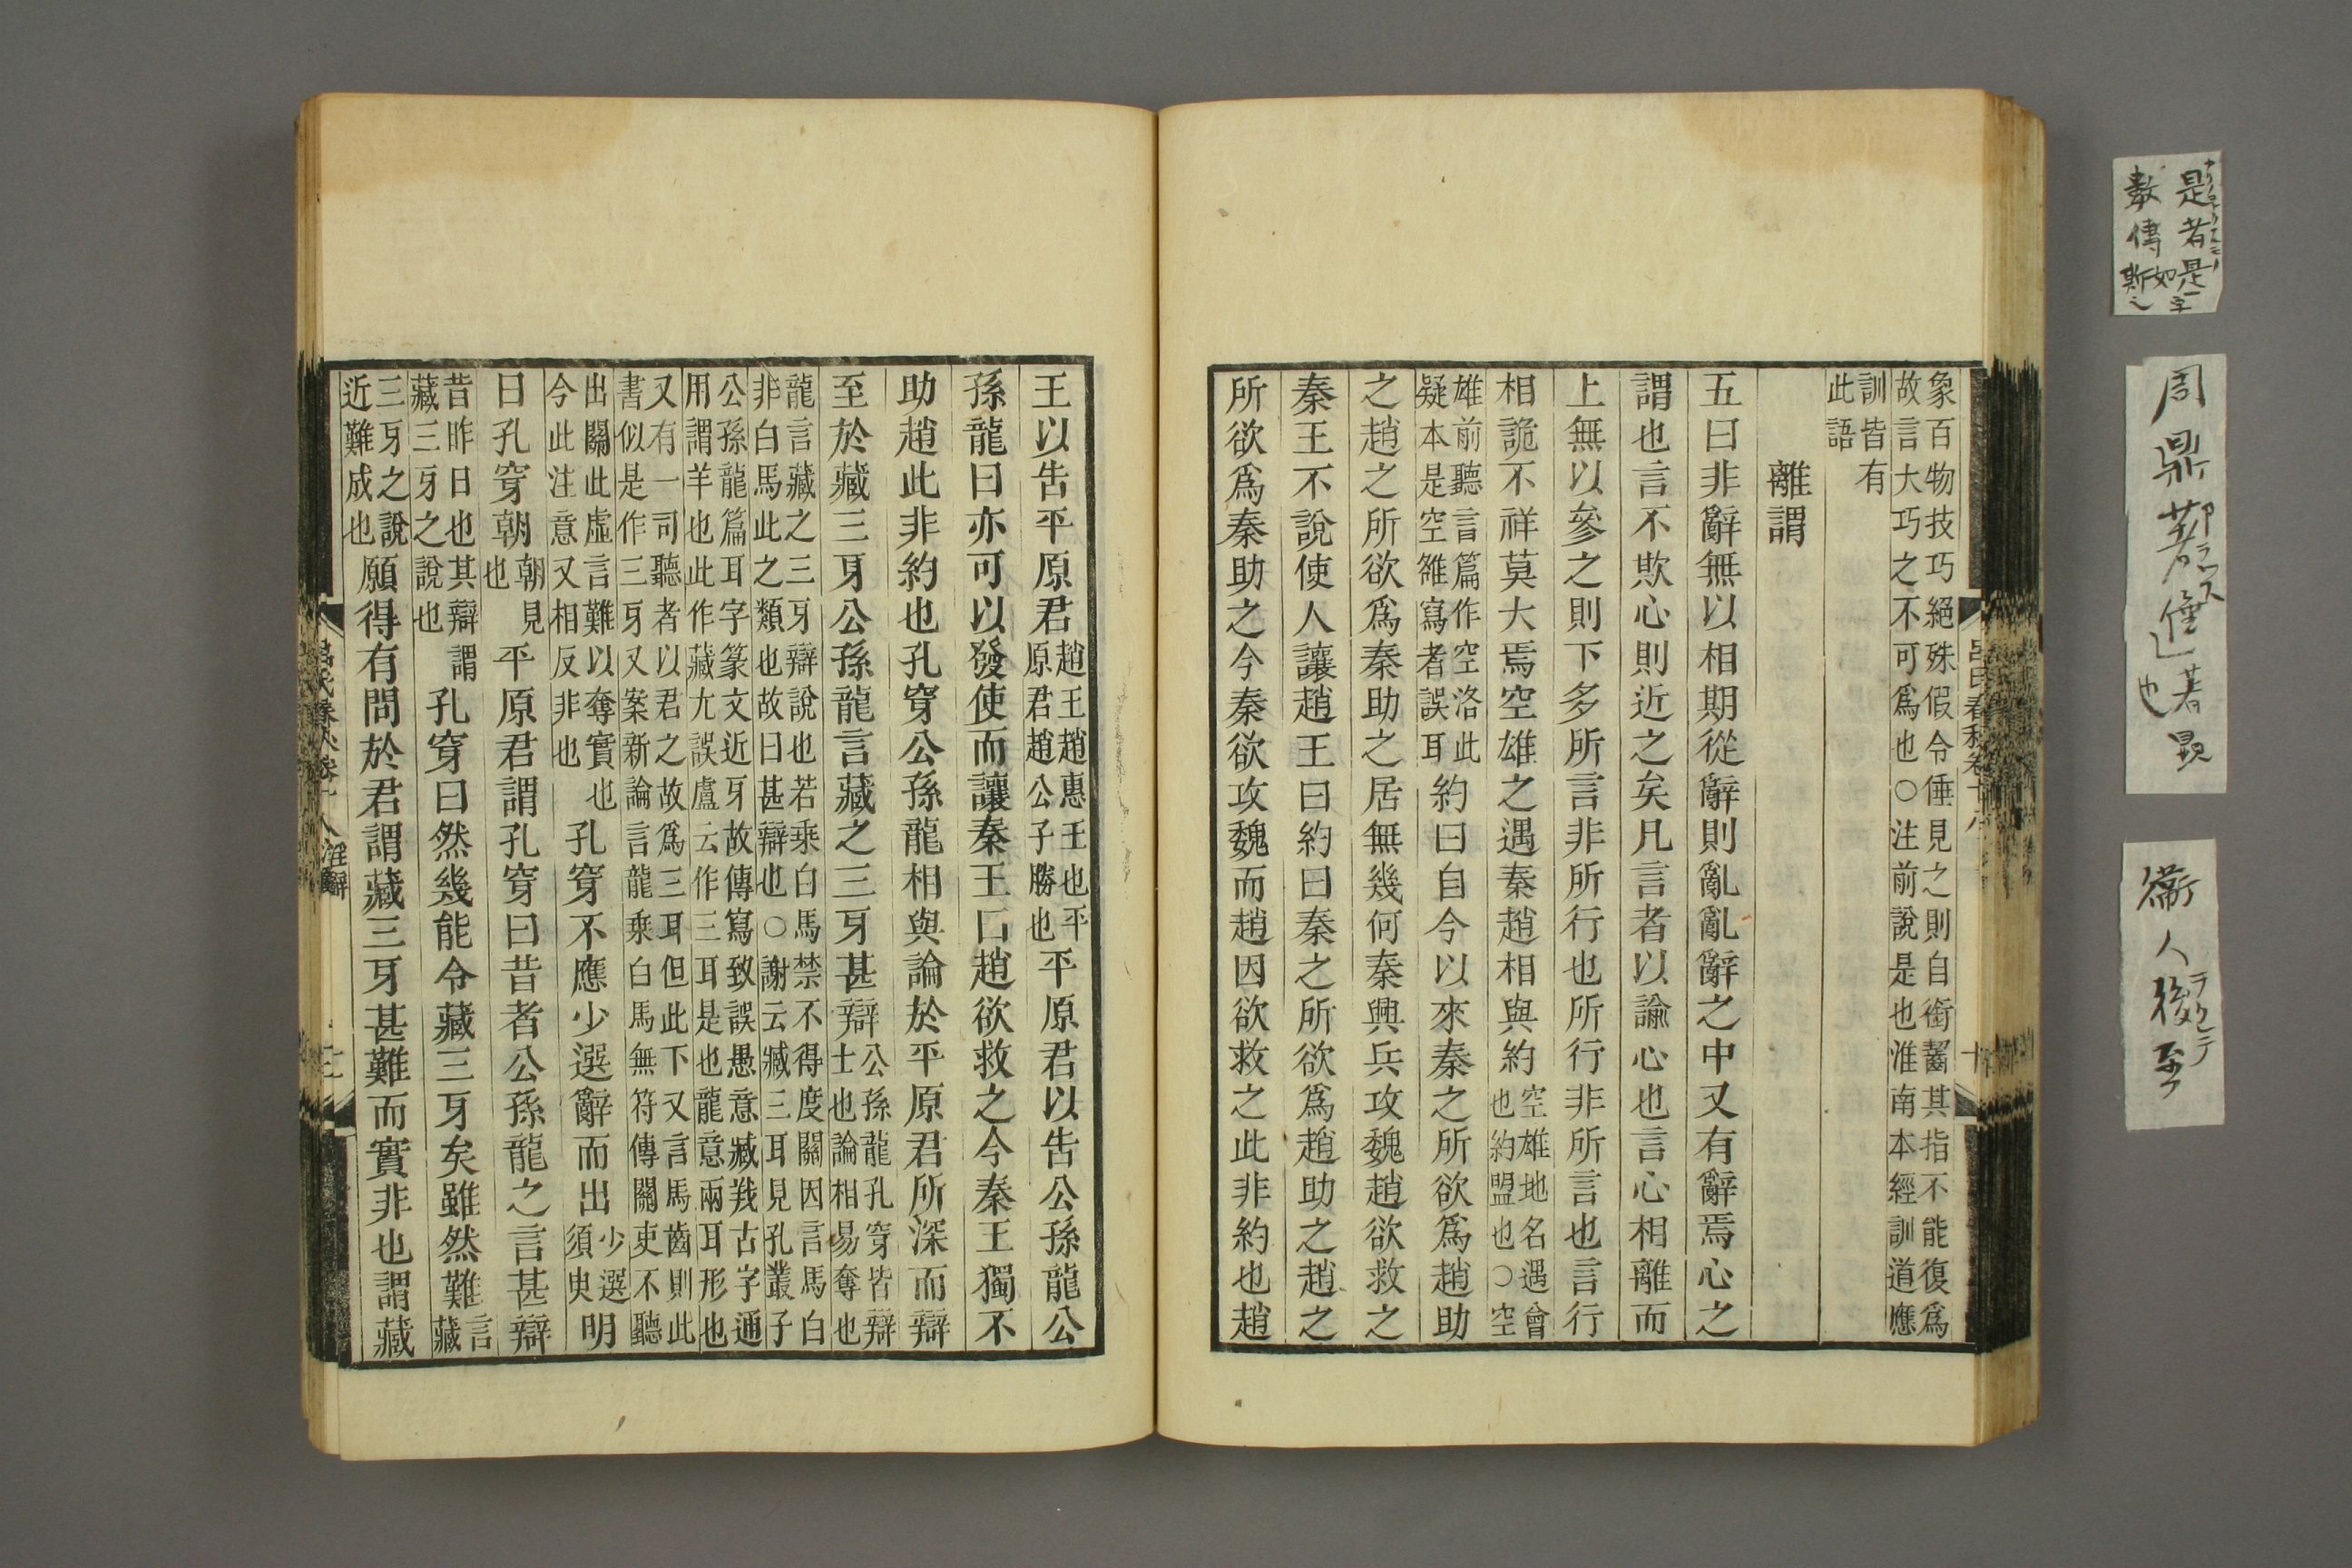 象百物技巧絕殊假令倕見之則自銜齧其指不能復爲
故言大巧之不可爲也○注前說是也淮南本經訓道應
訓皆有
此語
離謂
五曰非辭無以相期從辭則亂亂辭之中又有辭焉心之
謂也言不欺心則近之矣凡言者以諭心也言心相離而
上無以參之則下多所言非所行也所行非所言也言行
相詭不祥莫大焉空雄之遇秦趙相與約
空雄地名遇會
也約盟也○空
雄前聽言篇作空洛此
疑本是空雒寫者誤耳
約曰自今以來秦之所欲爲趙助
之趙之所欲爲秦助之居無幾何秦興兵攻魏趙欲救之
秦王不說使人讓趙王曰約曰秦之所欲爲趙助之趙之
所欲爲秦助之今秦欲攻魏而趙因欲救之此非約也趙
王以告平原君
趙王趙惠王也平
原君趙公子勝也
平原君以告公孫龍公
孫龍曰亦可以發使而讓秦王曰趙欲救之今秦王獨不
助趙此非約也孔穿公孫龍相與論於平原君所深而辯
至於藏三牙公孫龍言藏之三牙甚辯
公孫龍孔穿皆辯
士也論相易奪也
龍言藏之三牙辯說也若乘白馬禁不得度關因言馬白
非白馬此之類也故曰甚辯也○謝云臧三耳見孔叢子
公孫龍篇耳字篆文近牙故傳寫致誤愚意臧羘古字通
用謂羊也此作藏尤誤盧云作三耳是也龍意兩耳形也
又有一司聽者以君之故爲三耳但此下又言馬齒則此
書似是作三牙又案新論言龍乘白馬無符傳關吏不聽
出關此虛言難以奪實也
今此注意又相反非也
孔穿不應少選辭而出
少選
須臾
明
日孔穿朝
朝見
也
平原君謂孔穿曰昔者公孫龍之言甚辯
昔昨日也其辯謂
藏三牙之說也
孔穿曰然幾能令藏三牙矣雖然難
言
藏
三牙之說
近難成也
願得有問於君謂藏三牙甚難而實非也謂藏
呂氏春秋卷十八
淫辭
十
是若是
數傳如字
斯之
周鼎著
倕
著
也
衞人後至